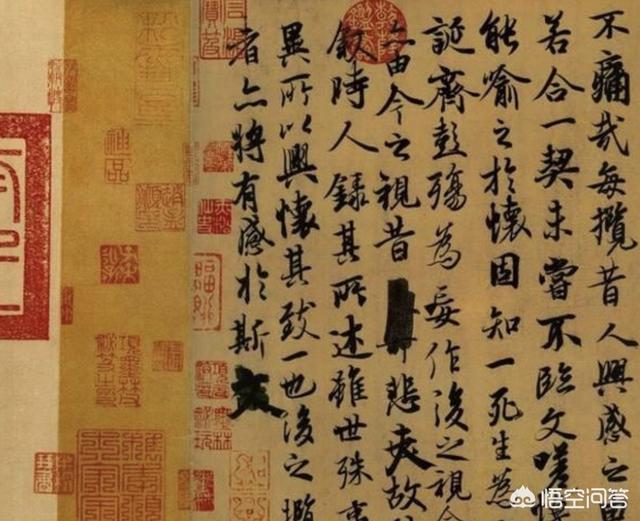 不痛哉每攬昔人興感之
若合一契未嘗不臨文嗟
能喻之於懷固知一死生為
誕齊彭殤為妄作後之視今
亦由今之視昔悲夫故
敘時人錄其所述雖世殊事
異所以興懷其致一也後之攬
者亦將有感於斯文
神品
悟空问答